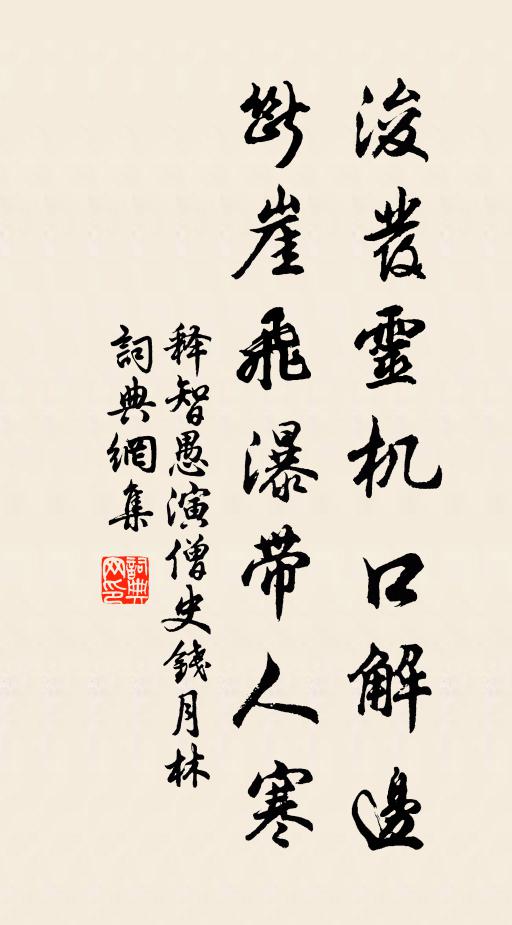 浚發靈机口解邊
斷崖飛瀑帶人寒
释智愚演僧史錢月林
詞典網集
詞典网印